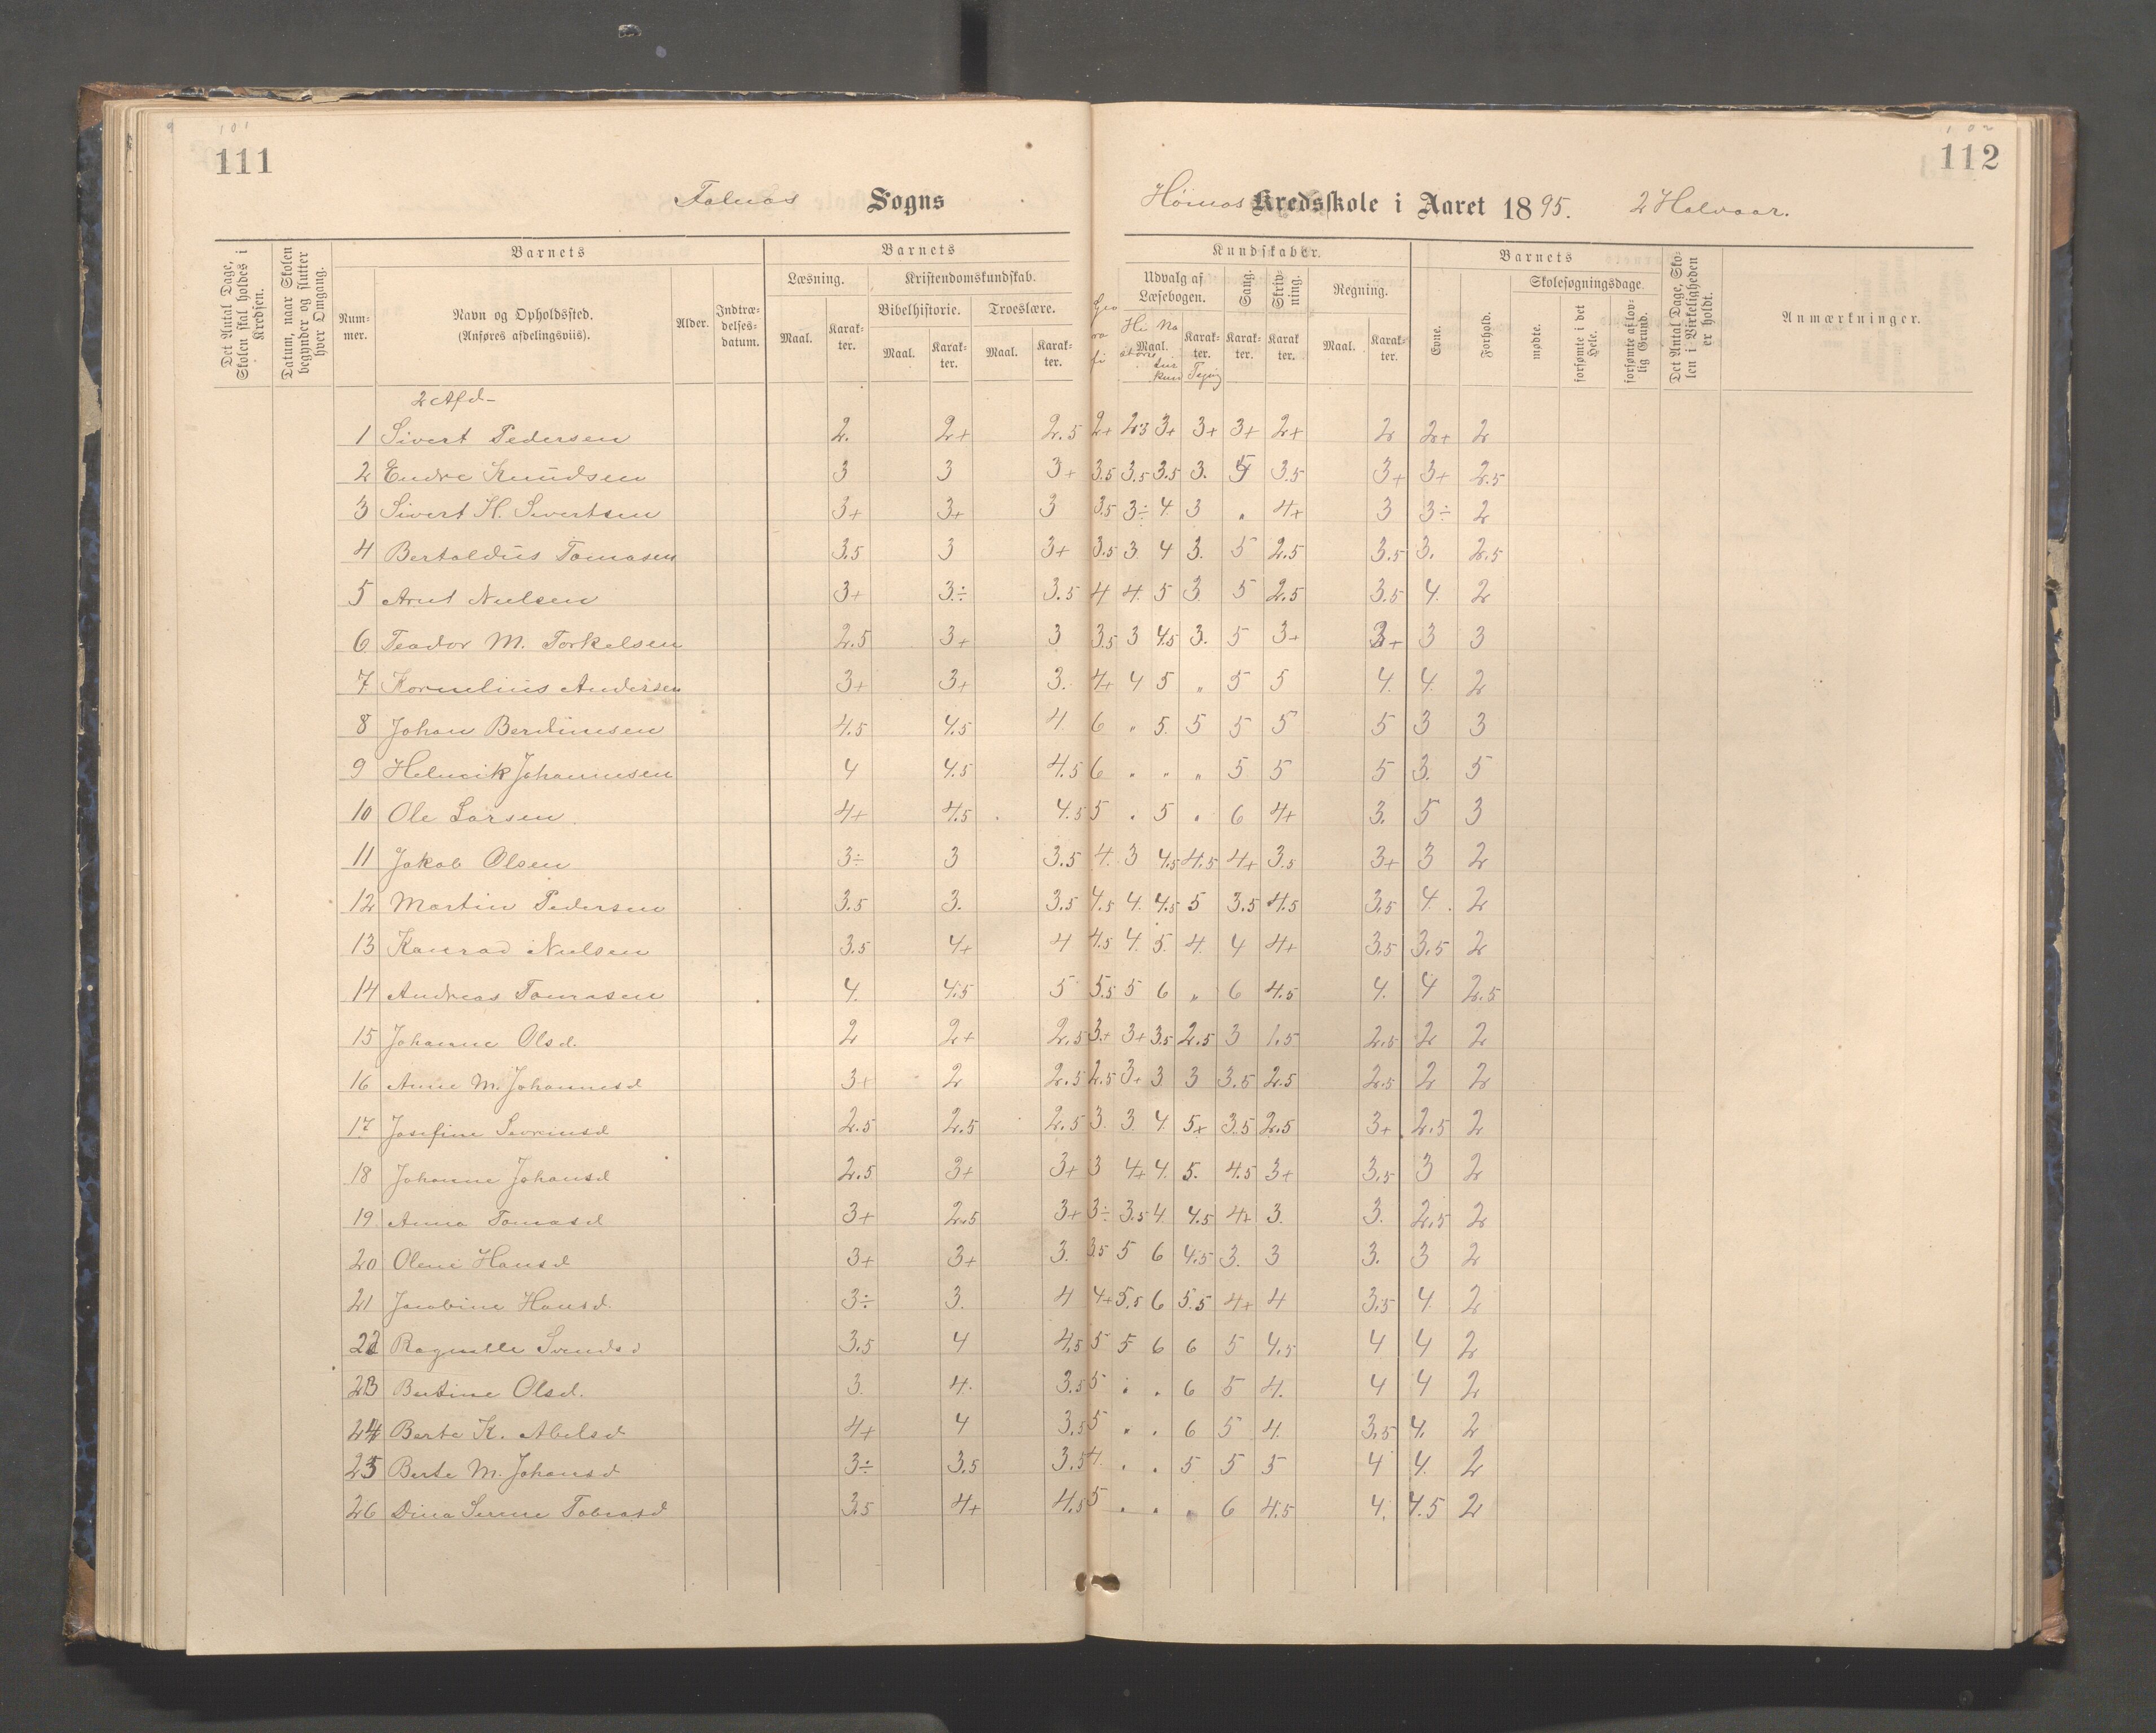 101
111
Falnæs Sogns
102
112
Høinæs Kredsskole i Aaret 1895. 2 Halvaar.
Det Antal Dage, Skolen skal holdes i Kredsen.
Datum, naar Skolen begynder og slutter hver Omgang.
Barnets
Num-
mer.
Navn og Opholdssted.
(Anføres afdelingsviis).
Alder.
Indtræ-
delses-
datum.
Barnets
Læsning.
Kristendomskundskab.
Bibelhistorie.
Troeslære.
Maal.
Karak-
ter.
Maal.
Karak-
ter.
Maal.
Karak-
ter.
Kundskaber.
Udvalg af
Læsebogen.
Maal.
Karak-
ter.
Sang.
Karak-
ter.
Skriv-
ning.
Karak
ter.
Regning.
Maal.
Karak-
ter.
Barnets
Evne.
Forhold.
Skolesøgningsdage.
mødte.
forsømte i det Hele.
forsømte af lov-
lig Grund.
Det Antal Dage, Sko-
len i Virkeligheden
er holdt.
Anmærkninger.
2 Afd-
1 Sivert Pedersen 2. 2+ 2.5 2+ 2.3 3+ 3+ 3+ 2+ 2 2+ 2
2 Endre Knudsen 3 3 3+ 3.5 3.5 3.5 3. 5 3.5 3+ 3+ 2.5
3 Sivert H. Sivertsen 3+ 3+ 3 3.5 3÷ 4 3 " 4+ 3 3÷ 2
4 Bertoldus Tomasen 3.5 3 3+ 3.5 3 4 3. 5 2.5 3.5 3. 2.5
5 Arnt Nielsen 3+ 3÷ 3.5 4 4. 5 3 5 2.5 3.5 4. 2
6 Teodor M. Torkelsen 2.5 3+ 3 3.5 3 4.5 3. 5 3+ 3+ 3 3
7 Kornelius Andersen 3+ 3+ 3. 4+ 4 5 " 5 5 4. 4. 2
8 Johan Berdinesen 4.5 4.5 4 6 " 5. 5 5 5 5 3 3
9 Helmik Johannesen 4 4.5 4.5 6 " " " 5 5 5 3. 5
10 Ole Larsen 4+ 4.5 4.5 5 " 5 " 6 4+ 3. 5 3
11 Jakob Olsen 3÷ 3 3.5 4. 3 4.5 4.5 4+ 3.5 3+ 3 2
12 Martin Pedersen 3.5 3. 3.5 4.5 4. 4.5 5 3.5 4.5 3.5 4. 2
13 Konrad Nielsen 3.5 4+ 4 4.5 4. 5. 4. 4 4+ 3.5 3.5 2
14 Andreas Tomasen 4. 4.5 5 5.5 5 6 " 6 4.5 4. 4 2.5
15 Johanne Olsd. 2 2+ 2.5 3+ 3+ 3.5 2.5 3 1.5 2.5 2 2
16 Anne M. Johannesd 3+ 2 2.5 2.5 3+ 3 3 3.5 2.5 2.5 2 2
17 Josefine Sevrinsd 2.5 2.5 2.5 3. 3 4. 5+ 3.5 2.5 3+ 2.5 2
18 Johanne Johansd 2.5 3+ 3+ 3 4+ 4. 5. 4.5 3+ 3.5 3 2
19 Anna Tomasd 3+ 2.5 3+ 3÷ 3.5 4. 4.5 4+ 3. 3. 2.5 2
20 Oleni Hansd 3+ 3+ 3. 3.5 5 6 4.5 3. 3 3. 3 2
21 Jacobine Hansd. 3÷ 3. 4 4+ 5.5 6 5.5 4+ 4 3.5 4. 2
22 Ragnille Svendsd 3.5 4 4.5 5 5 6 6 5 4.5 4 4 2
23 Bertine Olsd. 3. 4. 3.5 5 " " 6 5 4. 4 4 2
24 Berte K. Abelsd 4+ 4 3.5 5 " " 6 5 4. 3.5 4. 2
25 Berte M. Johansd 3÷ 3.5 3.5 4. " " 5 5 5 4 4. 2
26 Dina Serine Tobiasd 3.5 4+ 4.5 5 " " " 6 4.5 4. 4.5 2